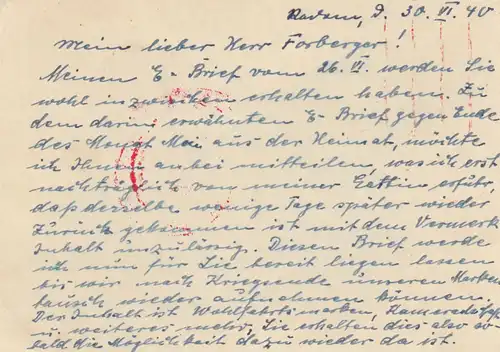 Radom, d. 30. VI. 40
Mein lieber Herr Forberger!
Meinen E-Brief vom 26. VI. werden Sie
wohl inzwischen erhalten haben. Zu
dem darin erwähnten E-Brief gegen Ende
des Monat Mai aus der Heimat, möchte
ich Ihnen anbei mitteilen, was ich erst
nachträglich von meiner Gattin erfuhr,
daß derselbe wenige Tage später wieder
zurück gekommen ist mit dem Vermerk
Inhalt unzulässig. Diesen Brief werde
ich nun für Sie bereit liegen lassen
bis wir nach Kriegsende unseren Marken
tausch wieder aufnehmen können.
Der Inhalt ist Wohlfahrtsmarken,
u. weiteres mehr, Sie erhalten dies also so
bald die Möglichkeit dazu wieder da ist.